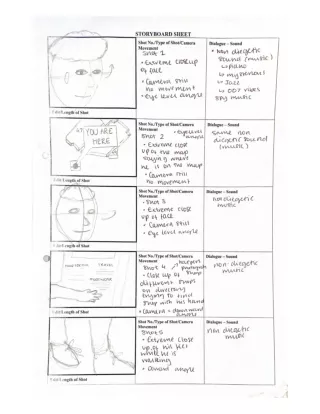 STORYBOARD SHEET
Shot No./Type of Shot/Camera Movement
Dialogue – Sound
Shot 1
• Extreme closeup of face
• Camera still no movement
• eye level angle
• Non diegetic sound (music)
↳ piano
↳ mysterious
↳ Jazz
↳ 007 vibes
spy music
Length of Shot
YOU ARE HERE
Shot No./Type of Shot/Camera Movement
Dialogue – Sound
Shot 2
• eye level angle
• Extreme close up of the map saying where he is on the map
• Camera still no movement
same non diegetic sound (music)
Length of Shot
Shot No./Type of Shot/Camera Movement
Dialogue – Sound
Shot 3
• Extreme close up of face
• Camera still
• Eye level angle
non diegetic music
Length of Shot
TRAVEL
Shot No./Type of Shot/Camera Movement
Dialogue – Sound
Shot 4
• Close up of
different shops on directory trying to find shop with his hand
• Camera = downward angle
non diegetic music
Length of Shot
Shot No./Type of Shot/Camera Movement
Dialogue – Sound
Shot 5
• Extreme close up of his feet while he is walking
• angle
non diegetic music
Length of Shot